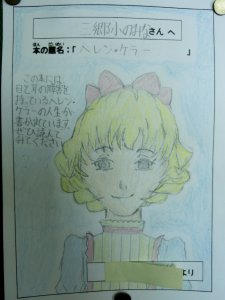 三郷小のみなさんへ
ほん だいめい
本の題名:「ヘレン・ケラー」
この本には
目と耳の障害を
持っているヘレン・
ケラーの人生が
書かれています。
ぜひ読んで
みてください。
より